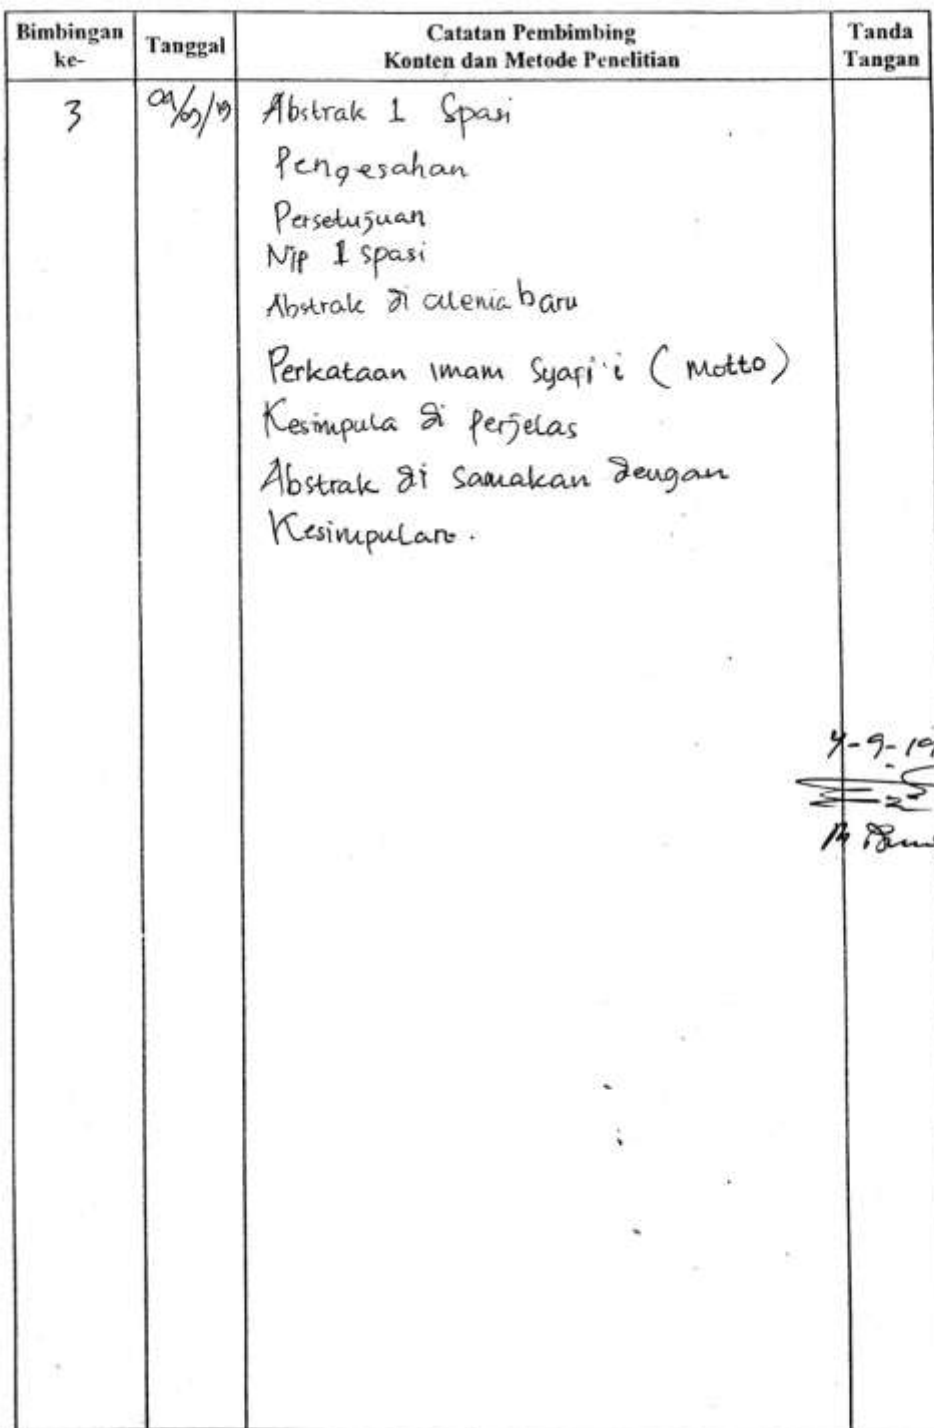 Bimbingan ke-
Tanggal
Catatan Pembimbing
Konten dan Metode Penelitian
Tanda Tangan
3
Abstrak 1 Spasi
Pengesahan
Persetujuan
Nip 1 spasi
Abstrak di alenia baru
Perkataan imam Syafi'i (motto)
Kesimpula di perjelas
Abstrak di samakan dengan
Kesimpulan.
4-9-19